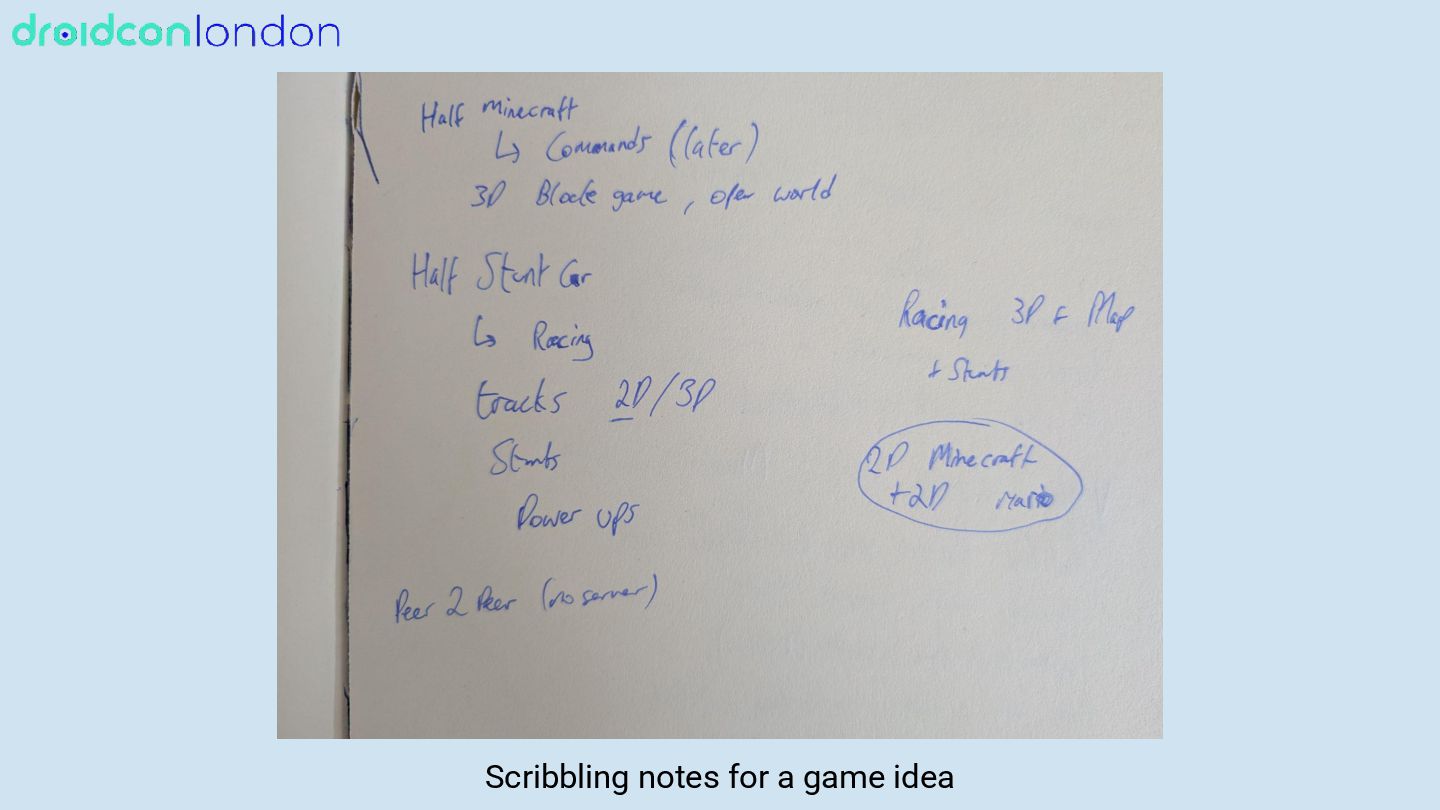 droidconlondon
Half Minecraft
↳ Commands (later)
3D Block game, open world
Half Stunt Car
↳ Racing
tracks 2D/3D
Stunts
Power ups
Peer 2 Peer (no server)
Racing 3D + Map
+ Stunts
2D Minecraft
+2D Mario
Scribbling notes for a game idea